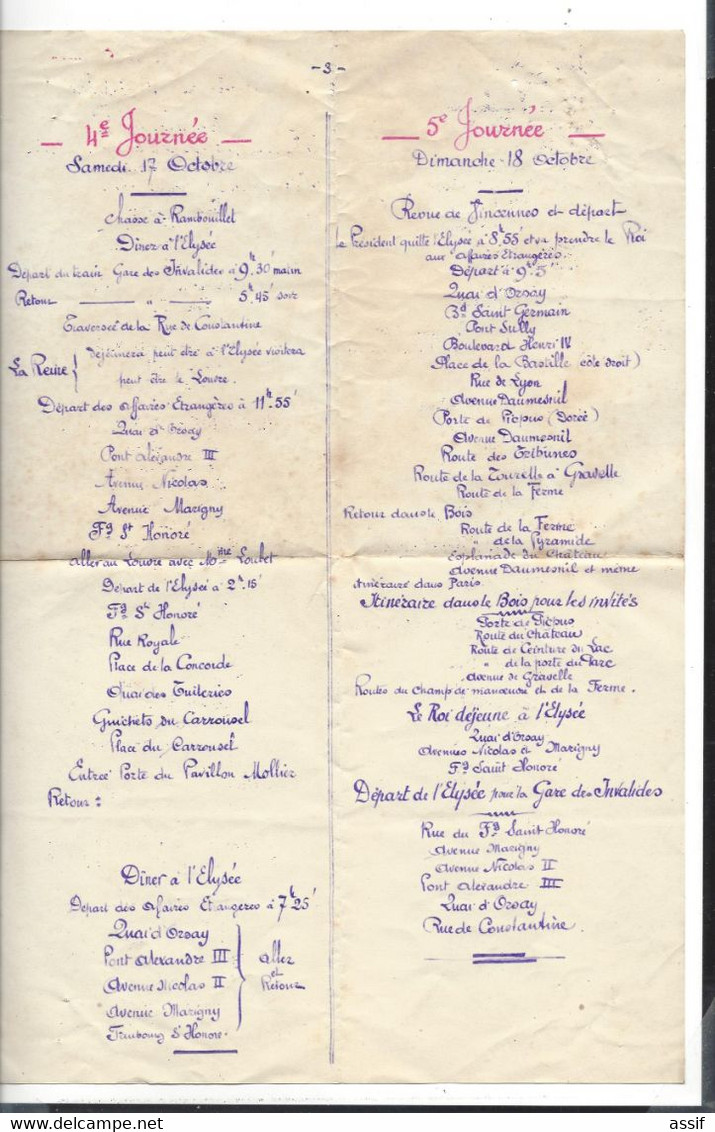 - 3 -
4e Journée
Samedi 17 Octobre
Chasse à Rambouillet
Dîner à l'Elysée
Départ du train Gare des Invalides à 9h 30' matin
Retour — " — 5h 45' soir
Traversée de la Rue de Constantine
La Reine { déjeûnera peut être à l'Elysée visitera
peut être le Louvre.
Départ des Affaires Etrangères à 11h 55'
Quai d'Orsay
Pont Alexandre III
Avenue Nicolas
Avenue Marigny
Fg St Honoré
Aller au Louvre avec Mme Loubet
Départ de l'Elysée à 2h 15'
Fg St Honoré
Rue Royale
Place de la Concorde
Quai des Tuileries
Guichets du Carrousel
Place du Carrousel
Entrée Porte du Pavillon Mollier
Retour :
Dîner à l'Elysée
Départ des Affaires Etrangères à 7h 25'
Quai d'Orsay
Pont Alexandre III
Avenue Nicolas II
Avenue Marigny
Faubourg St Honoré.
} Aller
et
Retour
5e Journée
Dimanche 18 Octobre
Revue de Vincennes et départ
Le Président quitte l'Elysée à 8h 55' et va prendre le Roi
aux Affaires Etrangères.
Départ à 9h 5'
Quai d'Orsay
Bd Saint Germain
Pont Sully
Boulevard Henri IV
Place de la Bastille (côté droit)
Rue de Lyon
Avenue Daumesnil
Porte de Picpus (Dorée)
Avenue Daumesnil
Route des Tribunes
Route de la Tourelle à Gravelle
Route de la Ferme
Retour dans le Bois
Route de la Ferme
" de la Pyramide
Esplanade du Château
Avenue Daumesnil et même
itinéraire dans Paris.
Itinéraire dans le Bois pour les invités
Porte de Picpus
Route du Château
Route de Ceinture du Lac
" de la porte du Parc
Avenue de Gravelle
Routes du Champ de manoeuvre et de la Ferme.
Le Roi déjeune à l'Elysée
Quai d'Orsay
Avenues Nicolas et Marigny
Fg Saint Honoré
Départ de l'Elysée pour la Gare des Invalides
Rue du Fg Saint Honoré
Avenue Marigny
Avenue Nicolas II
Pont Alexandre III
Quai d'Orsay
Rue de Constantine.
assif